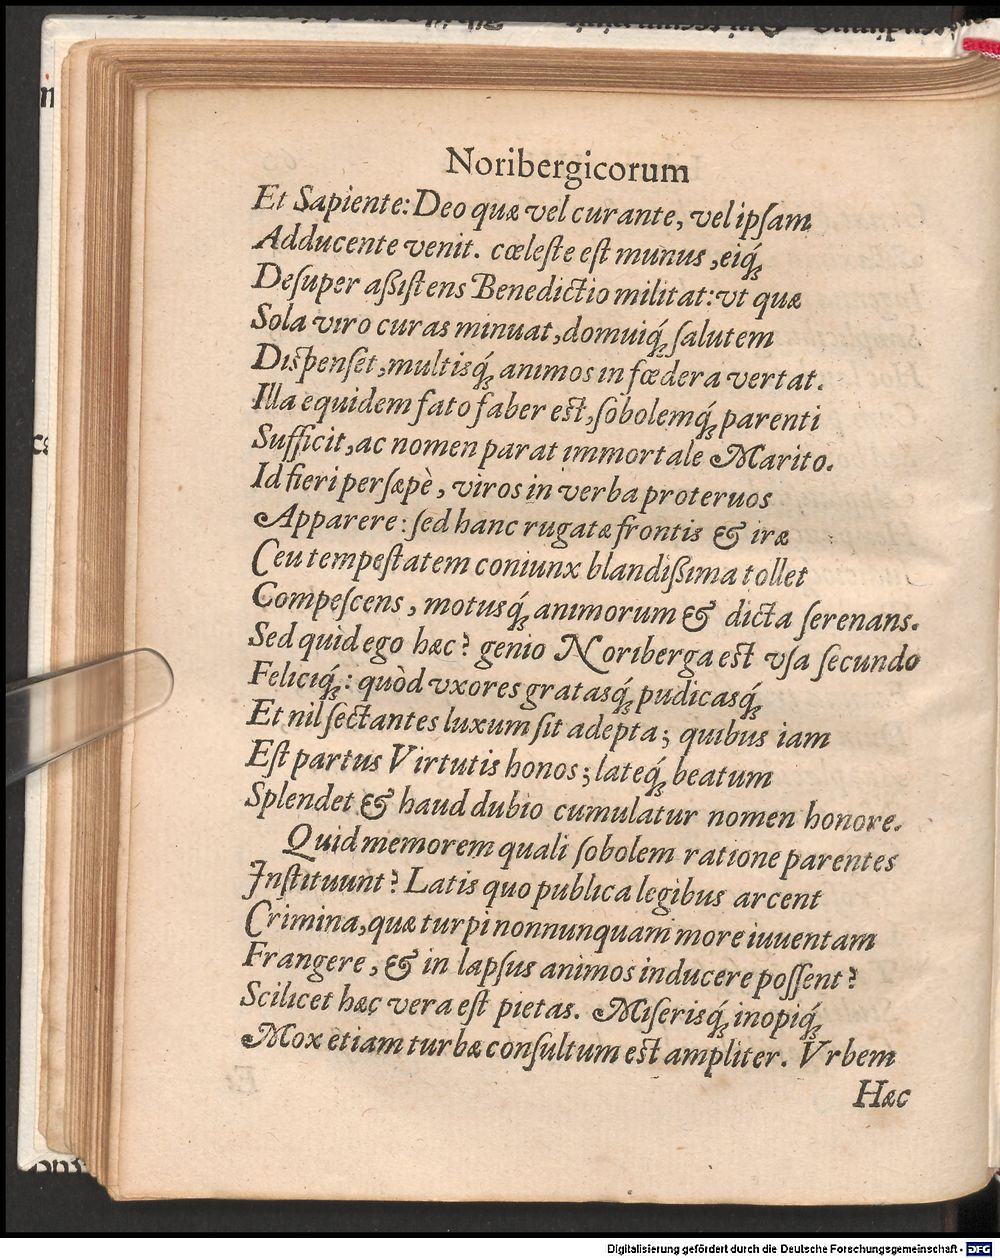 Noribergicorum
Et Sapiente: Deo quæ vel curante, vel ipſam
Adducente venit. cœleſte eſt munus, eiq́;
Deſuper aßiſtens Benedictio militat: vt quæ
Sola viro curas minuat, domuiq́; ſalutem
Diſpenſet, multisq́; animos in fœdera vertat.
Illa equidem fato faber eſt, ſobolemq́; parenti
Sufficit, ac nomen parat immortale Marito.
Id fieri perſæpè, viros in verba proteruos
Apparere: ſed hanc rugatæ frontis & iræ
Ceu tempeſtatem coniunx blandißima tollet
Compeſcens, motusq́; animorum & dicta ſerenans.
Sed quid ego hæc? genio Noriberga eſt vſa ſecundo
Feliciq́;: quòd vxores gratasq́; pudicasq́;
Et nil ſectantes luxum ſit adepta; quibus iam
Eſt partus Virtutis honos; lateq́; beatum
Splendet & haud dubio cumulatur nomen honore.
Quid memorem quali ſobolem ratione parentes
Inſtituunt? Latis quo publica legibus arcent
Crimina, quæ turpi nonnunquam more iuuentam
Frangere, & in lapſus animos inducere poſſent?
Scilicet hæc vera eſt pietas. Miſerisq́; inopiq́;
Mox etiam turbæ conſultum eſt ampliter. Vrbem
Hæc
Digitalisierung gefördert durch die Deutsche Forschungsgemeinschaft - DFG